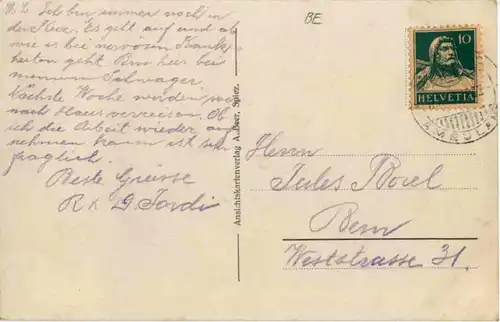 M. L. Ich bin immer noch in
der Kur. Es geht auf und ab
wie es bei nervösen Krank-
heiten geht. Bin hier bei
meinem Schwager.
Nächste Woche werden wir
nach Hause verreisen. Ob
ich die Arbeit wieder auf
nehmen kann ist sehr
fraglich.
Beste Grüsse
BE
Ansichtskartenverlag A. Beer, Spiez.
10
HELVETIA
Herrn
Jules Borel
Bern
Weststrasse 31.